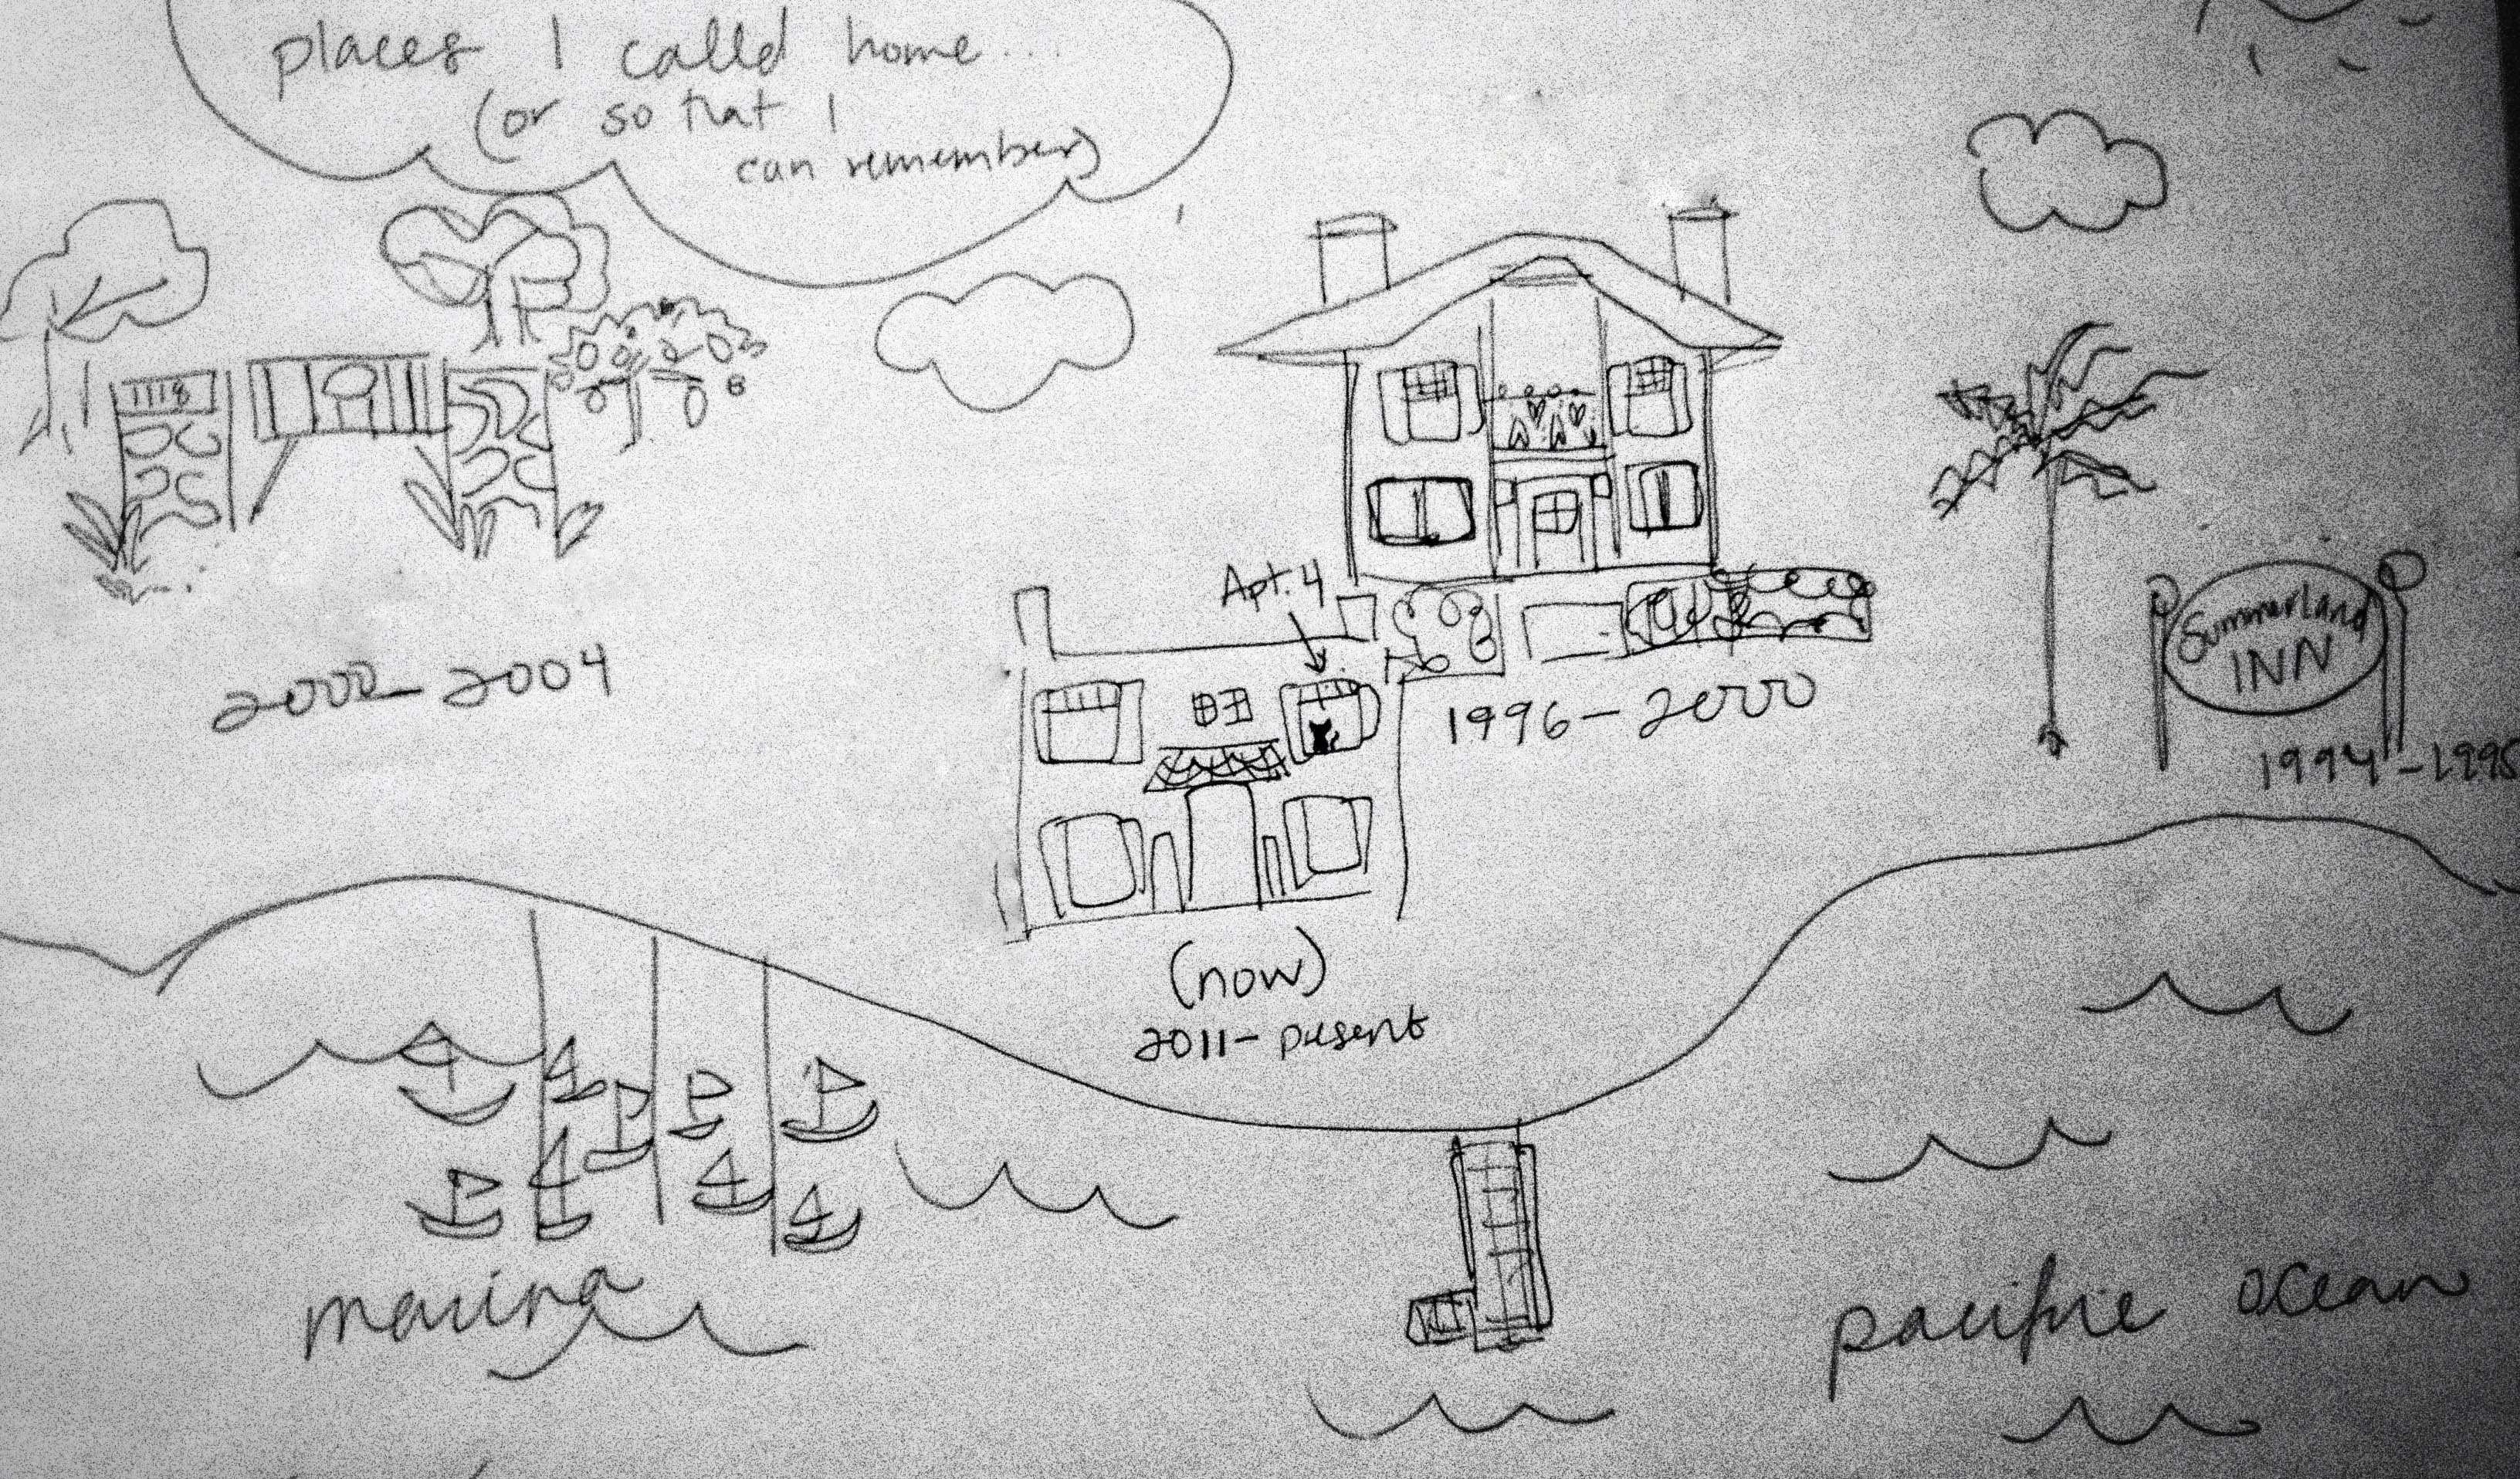 places I called home...
(or so that I
can remember)
1118
2000-2004
Apt. 4
1996-2000
Summerland
INN
1994-1995
(now)
2011- present
marina
pacific ocean